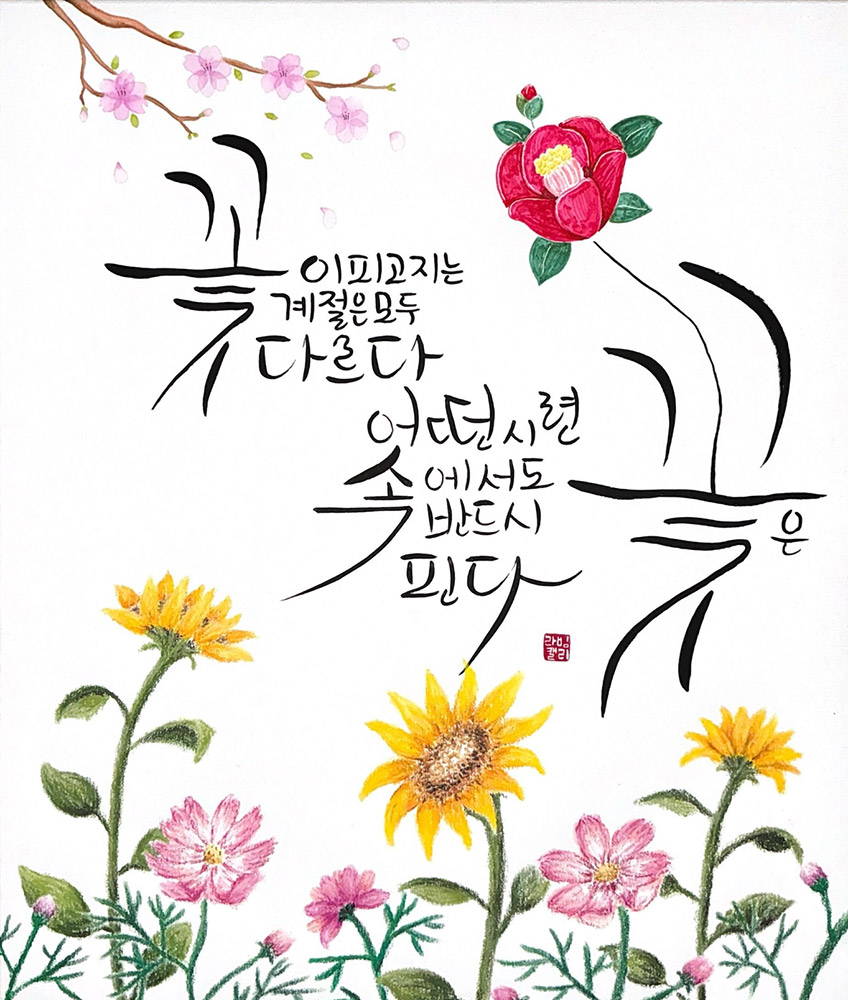 꽃이피고지는
계절은모두
다르다
어떤시련
속에서도
반드시
핀다
꽃은
라빔
캘리